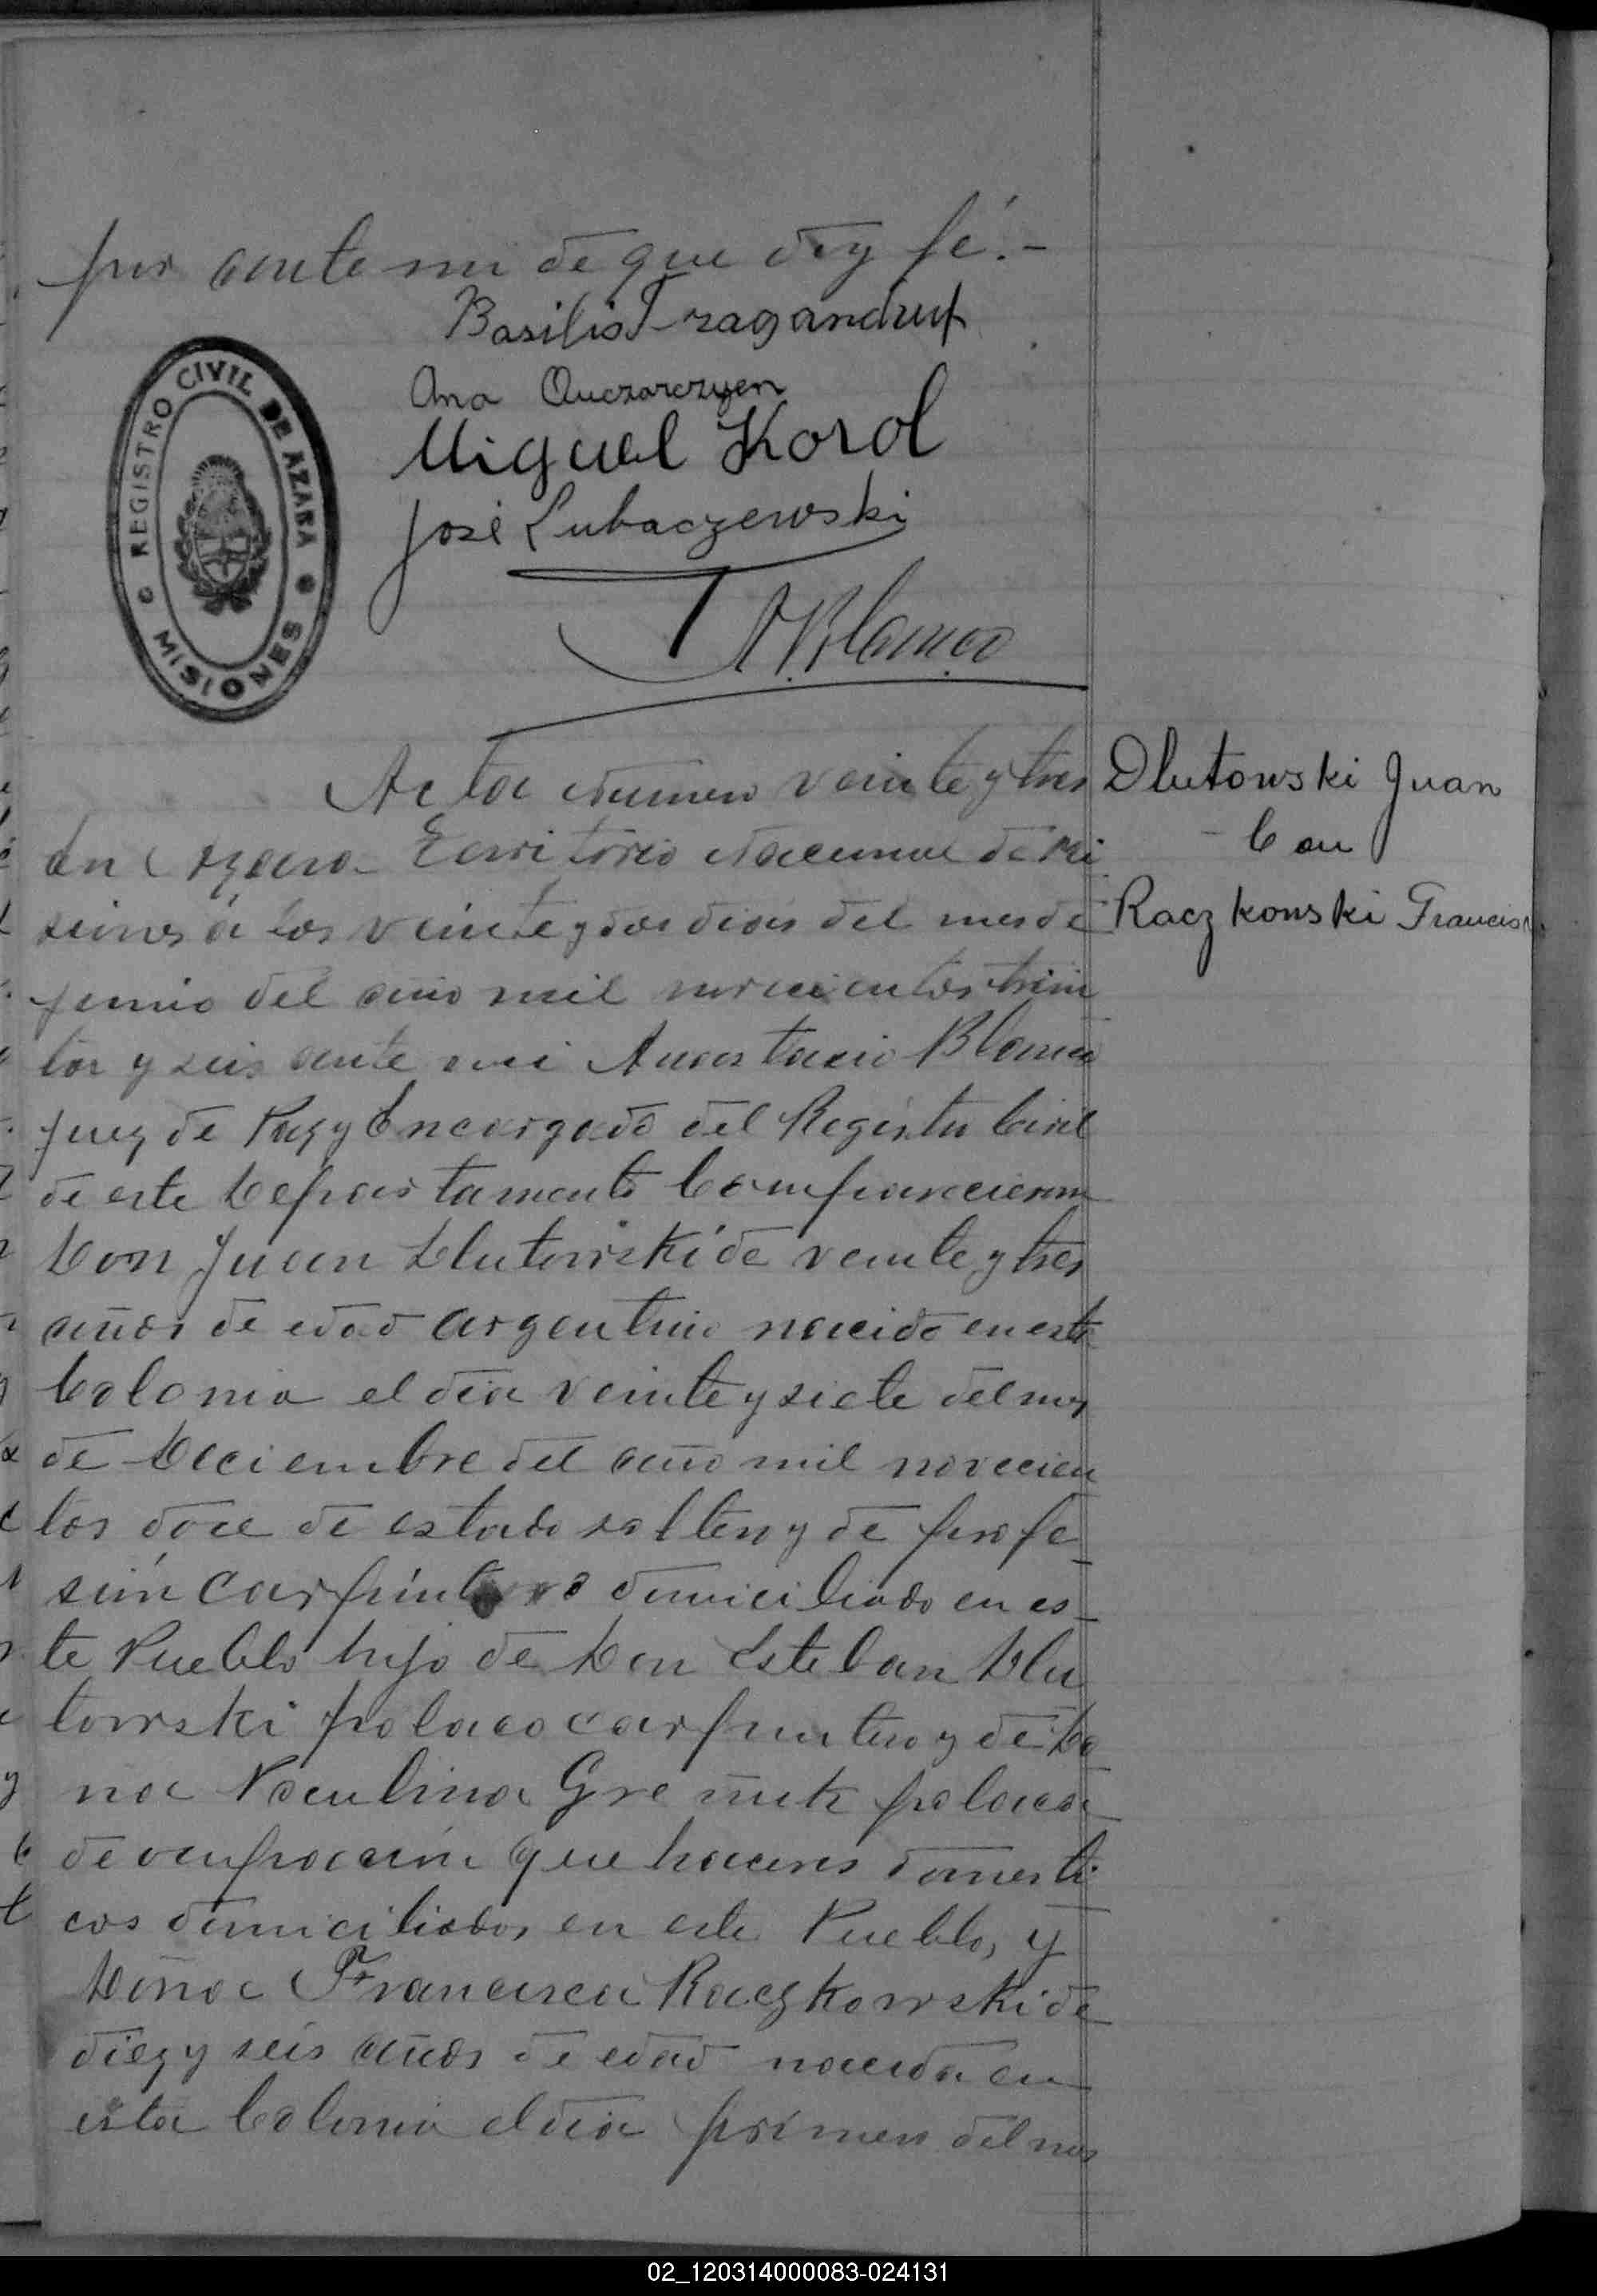 por ante mi de que doy fé.-
Basilio
Ana
Miguel Korol
José Lubaczewski
A. Blanco
REGISTRO CIVIL DE AZARA
MISIONES
Acta número veinte y tres
En Azara Territorio Nacional de Mi
siones á los veinte y dos dias del mes de
junio del año mil novecientos trein
ta y seis ante mi Anastacio Blanco
Juez de Paz y Encargado del Registro Civil
de este Departamento Comparecieron
Don Juan Dlutowski de veinte y tres
años de edad argentino nacido en esta
Colonia el dia veinte y siete del mes
de Deciembre del año mil novecien
tos doce de estado soltero y de profe-
sión carpintero domiciliado en es-
te Pueblo hijo de Don Esteban Dlu
towski polaco carpintero y de Do
ña Paulina polaca
de ocupación que haceres domesti
cos domiciliados en este Pueblo, y
Doña Francisca Raczkowski de
diez y seis años de edad nacida en
esta Colonia el dia primero del mes
Dlutowski Juan
- Con
Raczkowski Francisca
02_120314000083-024131